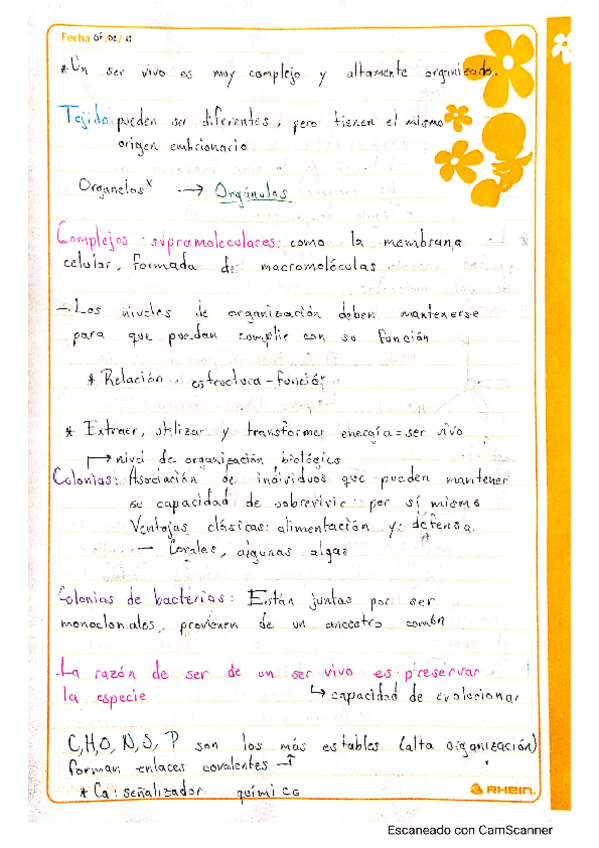 Fecha 05/02/21
* Un ser vivo es muy complejo y altamente organizado.
Tejido pueden ser diferentes, pero tienen el mismo
origen embrionario.
Organelos x → Orgánulos
Complejos supramoleculares: como la membrana
celular, formada de macromoléculas
- Los niveles de organización deben mantenerse
para que puedan complir con su función
* Relación estructura-función
* Extraer, utilizar y transformar energía = ser vivo
→ nivel de organización biológico
Colonias: Asociación de individuos que pueden mantener
su capacidad de sobrevivir por sí mismo
Ventajas clásicas: alimentación y defensa.
- Corales, algunas algas
Colonias de bacterias: Están juntas por ser
monoclonales, provienen de un ancestro común
- La razón de ser de un ser vivo es preservar
la especie ↳ capacidad de evolucionar
C,H,O, N,S, P son los más estables (alta organización)
forman enlaces covalentes
* Ca: señalizador químico
RHEIN
Escaneado con CamScanner